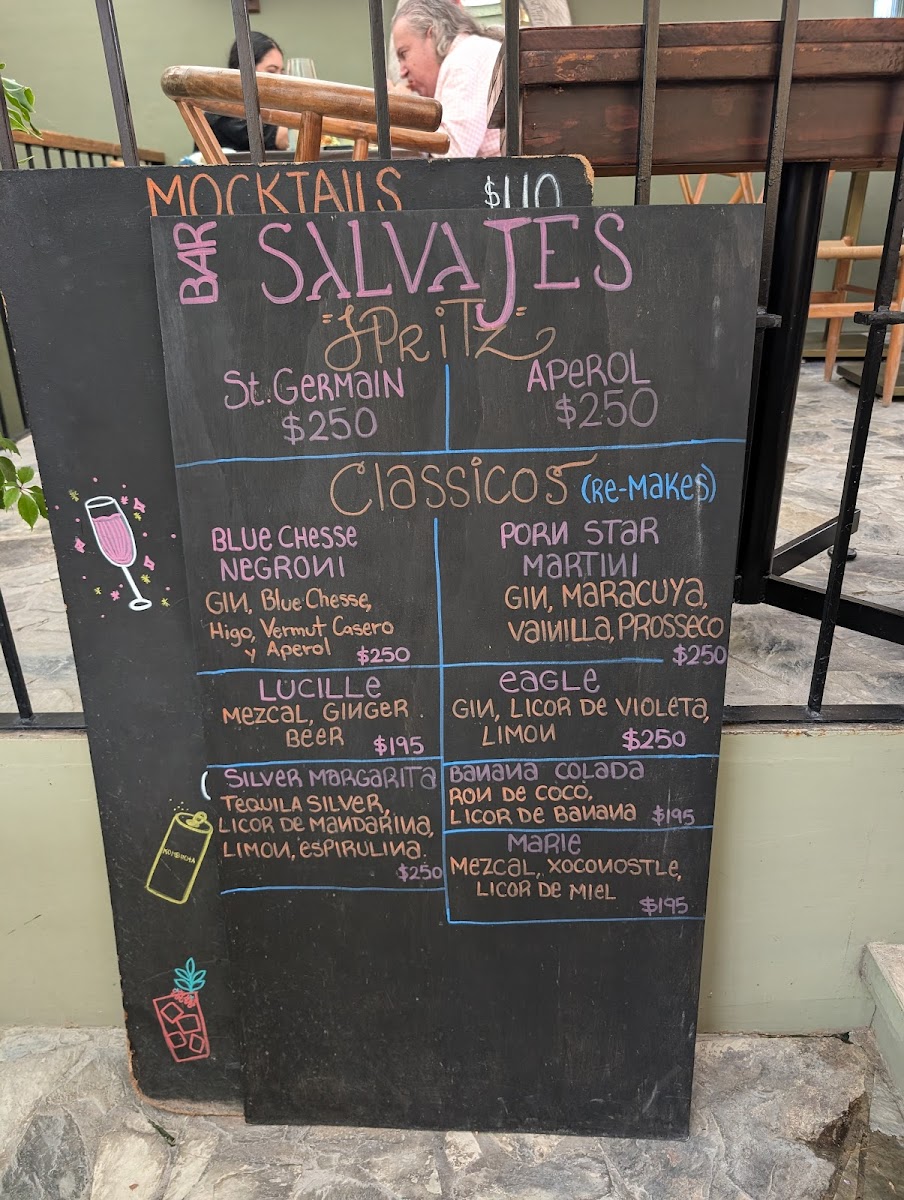 MOCKTAILS $110
BAR SALVAJES
"SPRITZ"
St. GERMAIN
$250
APEROL
$250
Classicos (RE-MAKES)
BLUE CHESSE
NEGRONI
GIN, Blue Chesse,
Higo, Vermut Casero
y Aperol $250
PORN STAR
MARTINI
GIN, MARACUYA,
VAINILLA, PROSSECO
$250
LUCILLE
MEZCAL, GINGER
BEER $195
EAGLE
GIN, LICOR DE VIOLETA,
LIMON $250
SILVER MARGARITA
TEQUILA SILVER,
LICOR DE MANDARINA,
LIMON, ESPIRULINA.
$250
BANANA COLADA
RON DE COCO,
LICOR DE BANANA $195
MARIE
MEZCAL, XOCONOSTLE,
LICOR DE MIEL
$195
KOMBUCHA